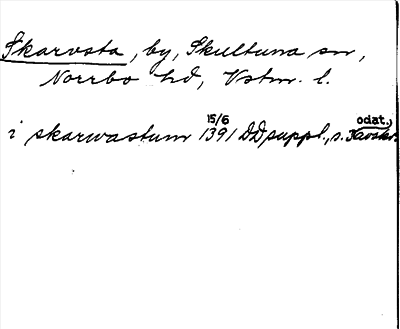 Skarvsta, by, Skultuna sn,
Norrbo hd, Vstm. l.
15/6 odat.,
i skarwastum 1391 DD suppl., s.